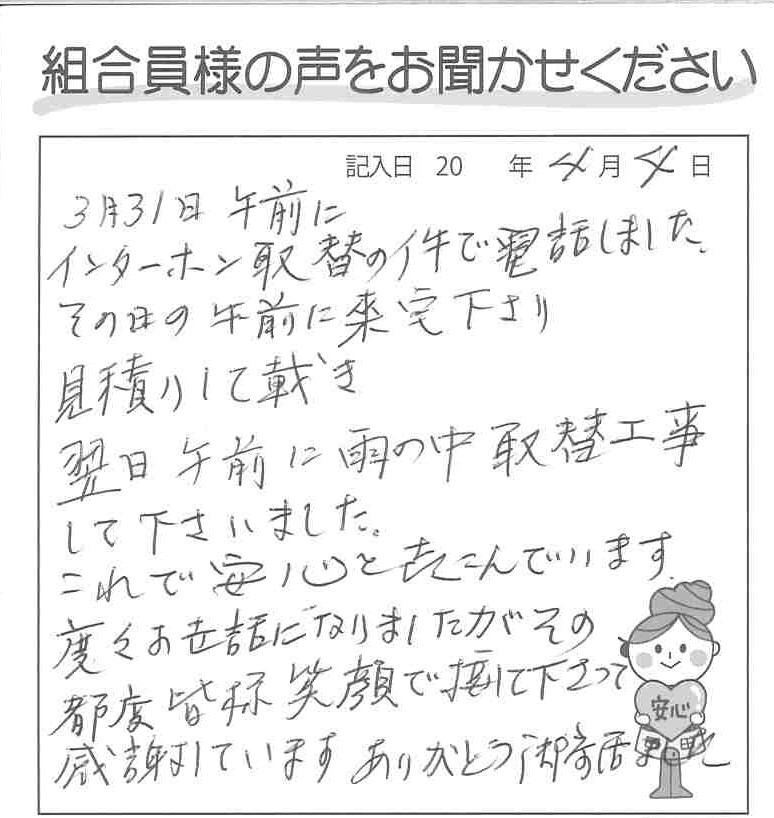 組合員様の声をお聞かせください
記入日 20 年 4月 4日
3月31日 午前に
インターホン取替の件で電話しました、
その日の午前に来宅下さり
見積りして戴き
翌日午前に雨の中取替工事
して下さいました。
これで安心と喜こんでいます。
度々お世話になりましたがその
都度皆様笑顔で接して下さって
感謝しています ありがとう御
安心